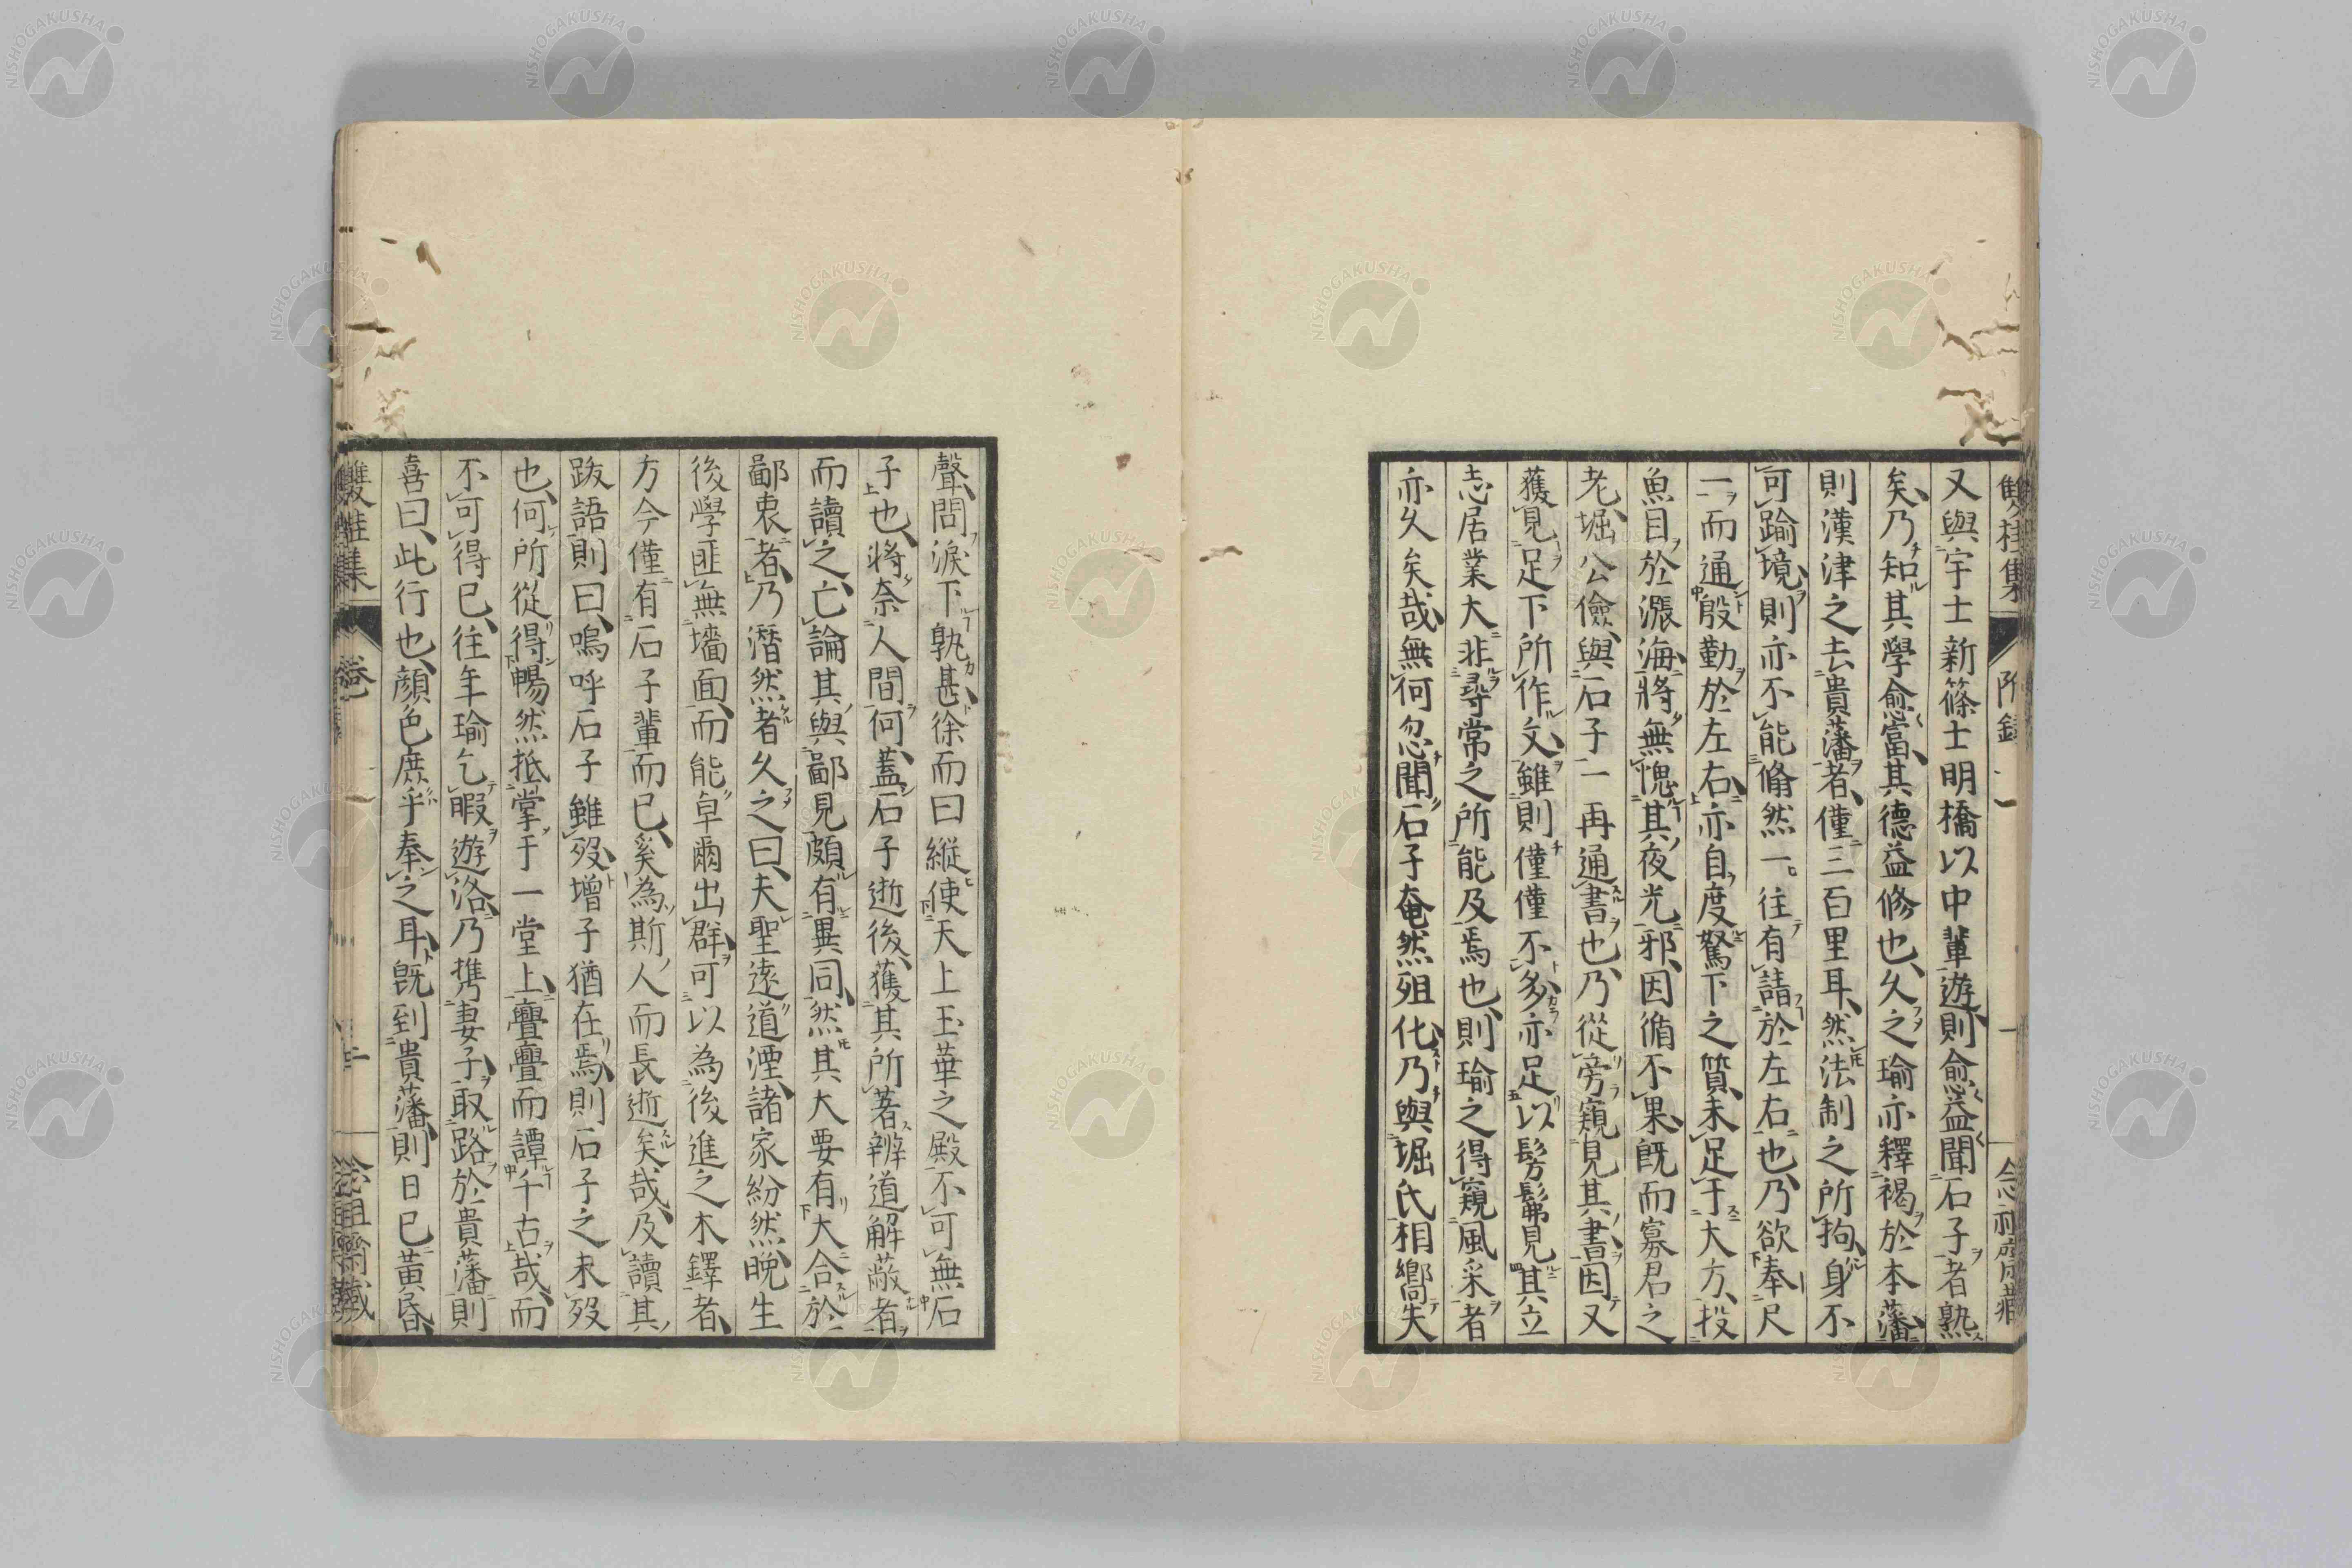 雙桂集 附錄 一
又與宇士新篠士明橋以中輩遊則愈益聞石子者熟
矣乃知其學愈富其德益修也久之瑜亦釋褐於本藩
則漢津之去貴藩者僅三百里耳然法制之所拘身不
可踰境則亦不能翛然一往有請於左右也乃欲奉尺
一而通殷勤於左右亦自度駑下之質未足于大方投
魚目於漲海將無愧其夜光邪因循不果既而寡君之
老堀公儉與石子一再通書也乃從旁窺見其書因又
獲見足下所作文雖則僅僅不多亦足以髣髴見其立
志居業大非尋常之所能及焉也則瑜之得窺風采者
亦久矣哉無何忽聞石子奄然殂化乃與堀氏相嚮失
聲問淚下孰甚徐而曰縱使天上玉華之殿不可無石
子也將奈人間何蓋石子逝後獲其所著辨道解蔽者
而讀之亡論其與鄙見頗有異同然其大要有大合於
鄙衷者乃潛然者久之曰夫聖遠道湮諸家紛然晚生
後學匪無墻面而能卓爾出群可以為後進之木鐸者
方今僅有石子輩而已奚為斯人而長逝矣哉及讀其
跋語則曰嗚呼石子雖歿增子猶在焉則石子之未歿
也何所從得暢然抵掌于一堂上亹亹而譚千古哉而
不可得已往年瑜乞暇遊洛乃携妻子取路於貴藩則
喜曰此行也顏色庶乎奉之耳既到貴藩則日已黃昏
雙桂集
NISHOGAKUSHA